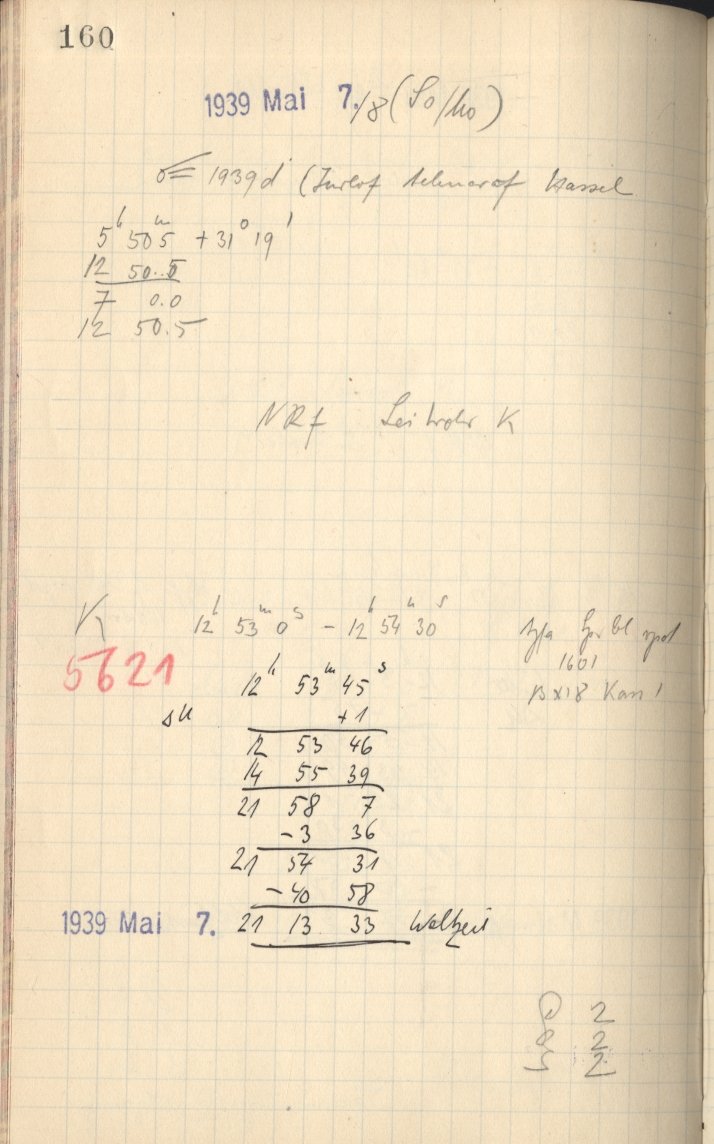 160
1939 Mai 7./8 (So/Mo)
1939d (Jurlof Achmarof Hassel
5ʰ 50ᵐ5 +31° 19'
12 50.5
7 0.0
12 50.5
NRf Leitrohr K
K 12ʰ 53ᵐ 0ˢ - 12ʰ 54ᵐ 30ˢ
5621 12ʰ 53ᵐ 45ˢ 1601
+1
12 53 46
14 55 39
21 58 7
-3 36
21 54 31
-40 58
1939 Mai 7. 21 13 33 Weltzeit
2
2
2